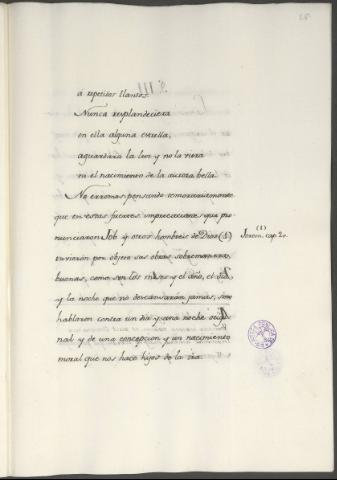 28
a repetidos llantos.
Nunca resplandeciera
en ella alguna estrella,
aguardara la luz y no la viera
ni el nacimiento de la aurora bella.
No erremos pensando temerariamente
que en estas fuertes imprecaciones que pro
nunciaron Job y otros hombres de Dios (1)
tuvieron por objeto sus obras sobremanera
buenas, como son los meses y el año, el día,
y la noche que no descansarán jamas,
hablaron contra un dia y una noche origi
nal y de una concepcion y un nacimiento
moral que nos hace hijos de la ira.
(1)
Jerem. cap. 20